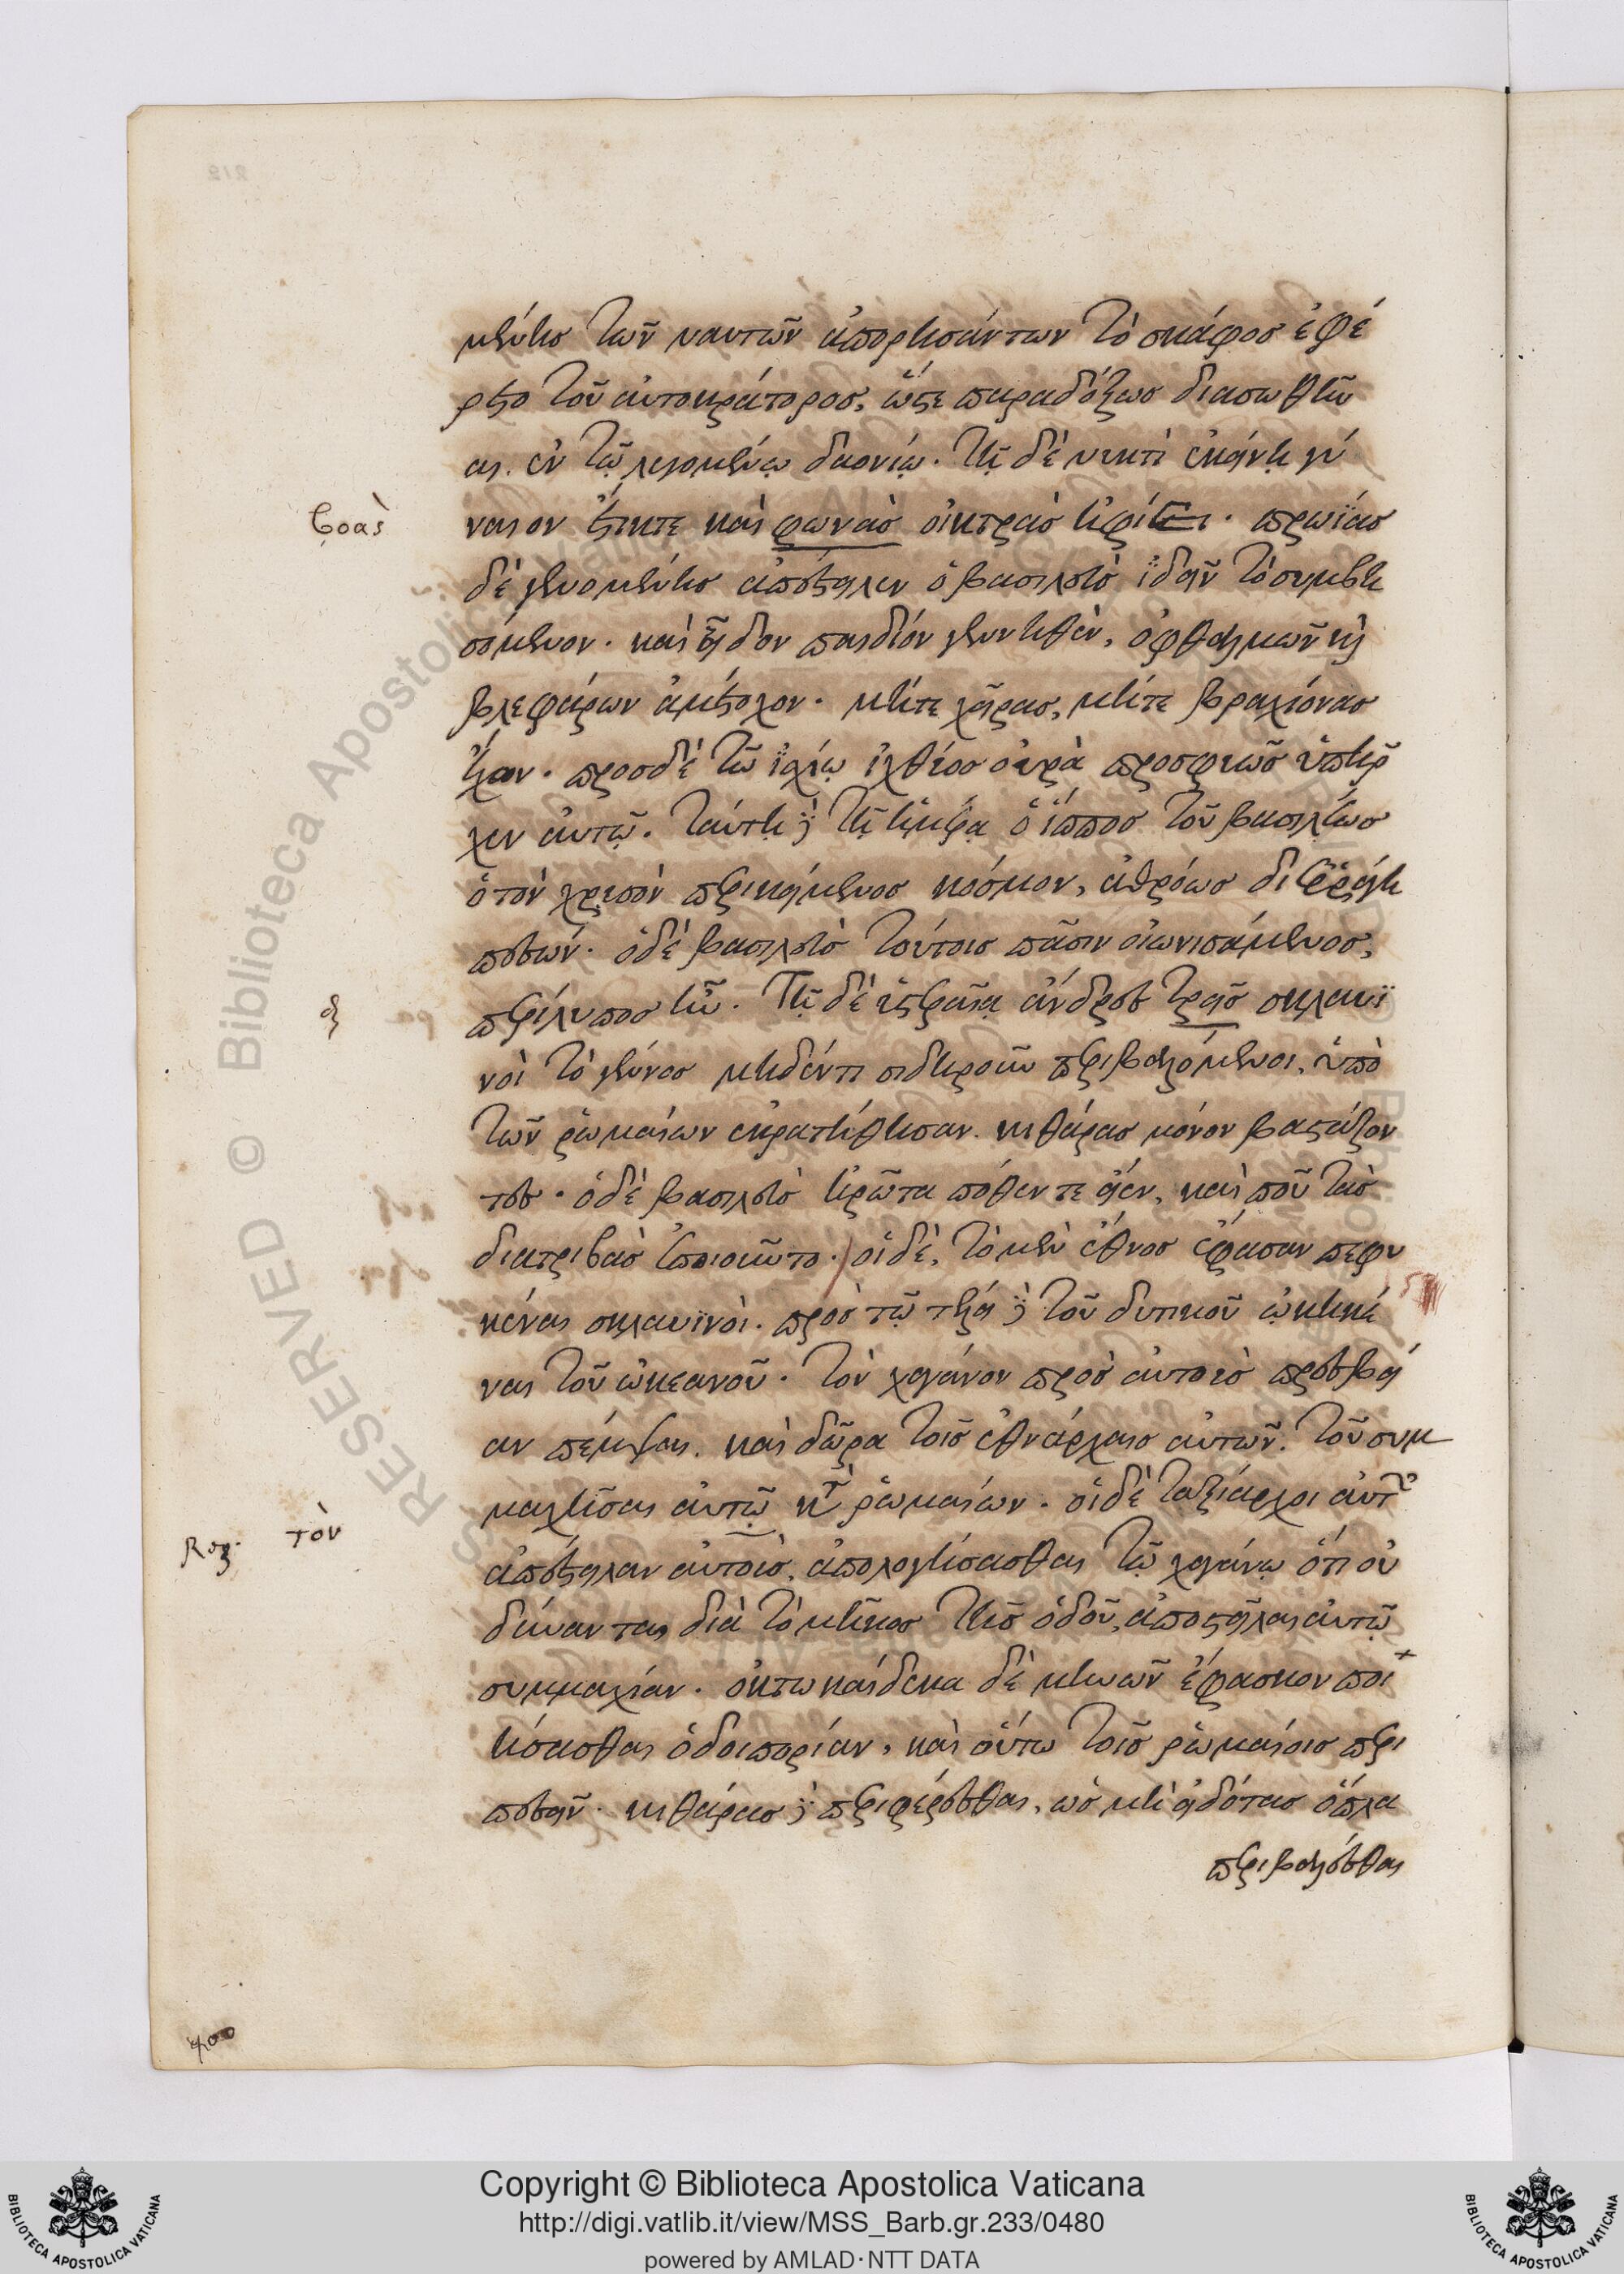 μένης τῶν ναυτῶν ἀπορησάντων τὸ σκάφος ἐφέ
ρετο τοῦ αὐτοκράτορος, ὥστε παραδόξως διασωθῆν
αι ἐν τῷ λεγομένῳ δαονίῳ. τῇ δὲ νυκτὶ ἐκείνῃ γύ
ναιον ἔτικτε καὶ φωνὰς οἰκτρὰς ἠφίει. πρωΐας
βοὰς
δὲ γενομένης ἀπέστειλεν ὁ βασιλεὺς ἰδεῖν τὸ συμβη
σόμενον. καὶ εἶδον παιδίον γεννηθὲν, ὀφθαλμῶν καὶ
βλεφάρων ἀμέτοχον. μήτε χεῖρας, μήτε βραχίονας
ἔχον. πρὸς δὲ τῷ ἰσχίῳ ἰχθύος οὐρὰ προσφυὴς ὑπῆρ
χεν αὐτῷ. ταύτῃ τῇ ἡμέρᾳ ὁ ἵππος τοῦ βασιλέως
ὁ τὸν χρυσὸν περικείμενος κόσμον, ἀθρόως διερράγη
πεσών. ὁ δὲ βασιλεὺς τούτοις πᾶσιν οἰωνισάμενος,
περίλυπος ἦν. Τῇ δὲ ὑστεραίᾳ ἄνδρες τρεῖς σκλαυϊ
νοὶ τὸ γένος μηδέν τι σιδηροῦν περιβαλλόμενοι, ὑπὸ
τῶν ῥωμαίων ἐκρατήθησαν. κιθάρας μόνον βαστάζον
τες. ὁ δὲ βασιλεὺς ἠρώτα πόθεν τε εἶεν, καὶ ποῦ τὰς
διατριβὰς ἐποιοῦντο. οἱ δὲ, τὸ μὲν ἔθνος ἔφασαν πεφυ
κέναι σκλαυϊνοὶ. πρὸς τῷ τέλει τοῦ δυτικοῦ ᾠκηκέ
ναι τοῦ ὠκεανοῦ. τὸν χαγάνον πρὸς αὐτοὺς πρέσβει
αν πέμψαι. καὶ δῶρα τοῖς ἐθνάρχαις αὐτῶν. τοῦ συμ
μαχῆσαι αὐτῷ κατὰ ῥωμαίων. οἱ δὲ ταξίαρχοι αὐτῶν
Reg. τὸν
ἀπέστειλαν αὐτοὺς, ἀπολογήσασθαι τῷ χαγάνῳ ὅτι οὐ
δύνανται διὰ τὸ μῆκος τῆς ὁδοῦ, ἀποστεῖλαι αὐτῷ
συμμαχίαν. ὀκτωκαίδεκα δὲ μηνῶν ἔφασκον ποι
ήσασθαι ὁδοιπορίαν, καὶ οὕτω τοῖς ῥωμαίοις περι
πεσεῖν. κιθάρας περιφέρεσθαι, ὡς μὴ εἰδότας ὅπλα
περιβαλέσθαι
400
Copyright © Biblioteca Apostolica Vaticana
http://digi.vatlib.it/view/MSS_Barb.gr.233/0480
powered by AMLAD·NTT DATA
BIBLIOTECA APOSTOLICA VATICANA
BIBLIOTECA APOSTOLICA VATICANA